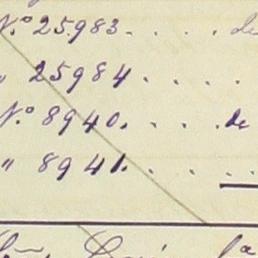 N.º 25983. . . . . de
" 25984 . . . . .
N.º 8940. . . . . de
" 8941. . . . . .